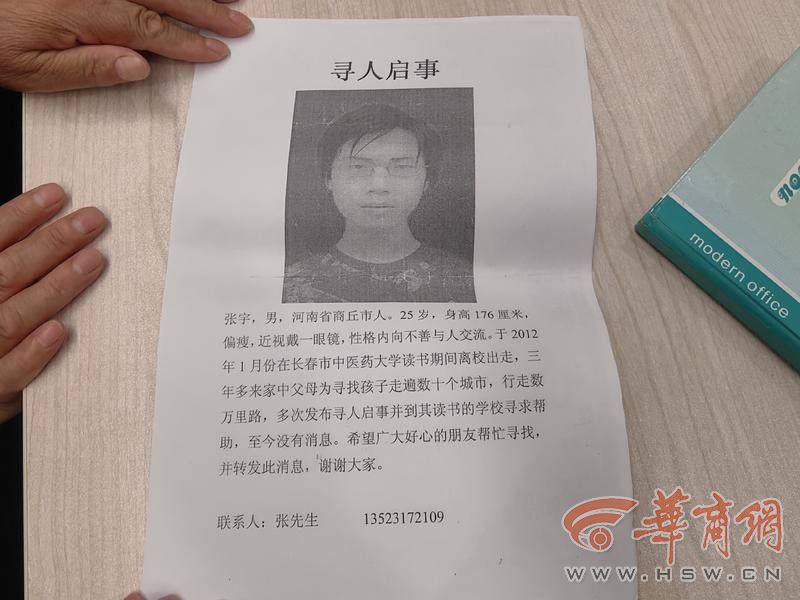 寻人启事
张宇，男，河南省商丘市人。25岁，身高176厘米，
偏瘦，近视戴一眼镜，性格内向不善与人交流。于2012
年1月份在长春市中医药大学读书期间离校出走，三
年多来家中父母为寻找孩子走遍数十个城市，行走数
万里路，多次发布寻人启事并到其读书的学校寻求帮
助，至今没有消息。希望广大好心的朋友帮忙寻找，
并转发此消息，谢谢大家。
联系人：张先生 13523172109
modern office
華商網
WWW.HSW.CN